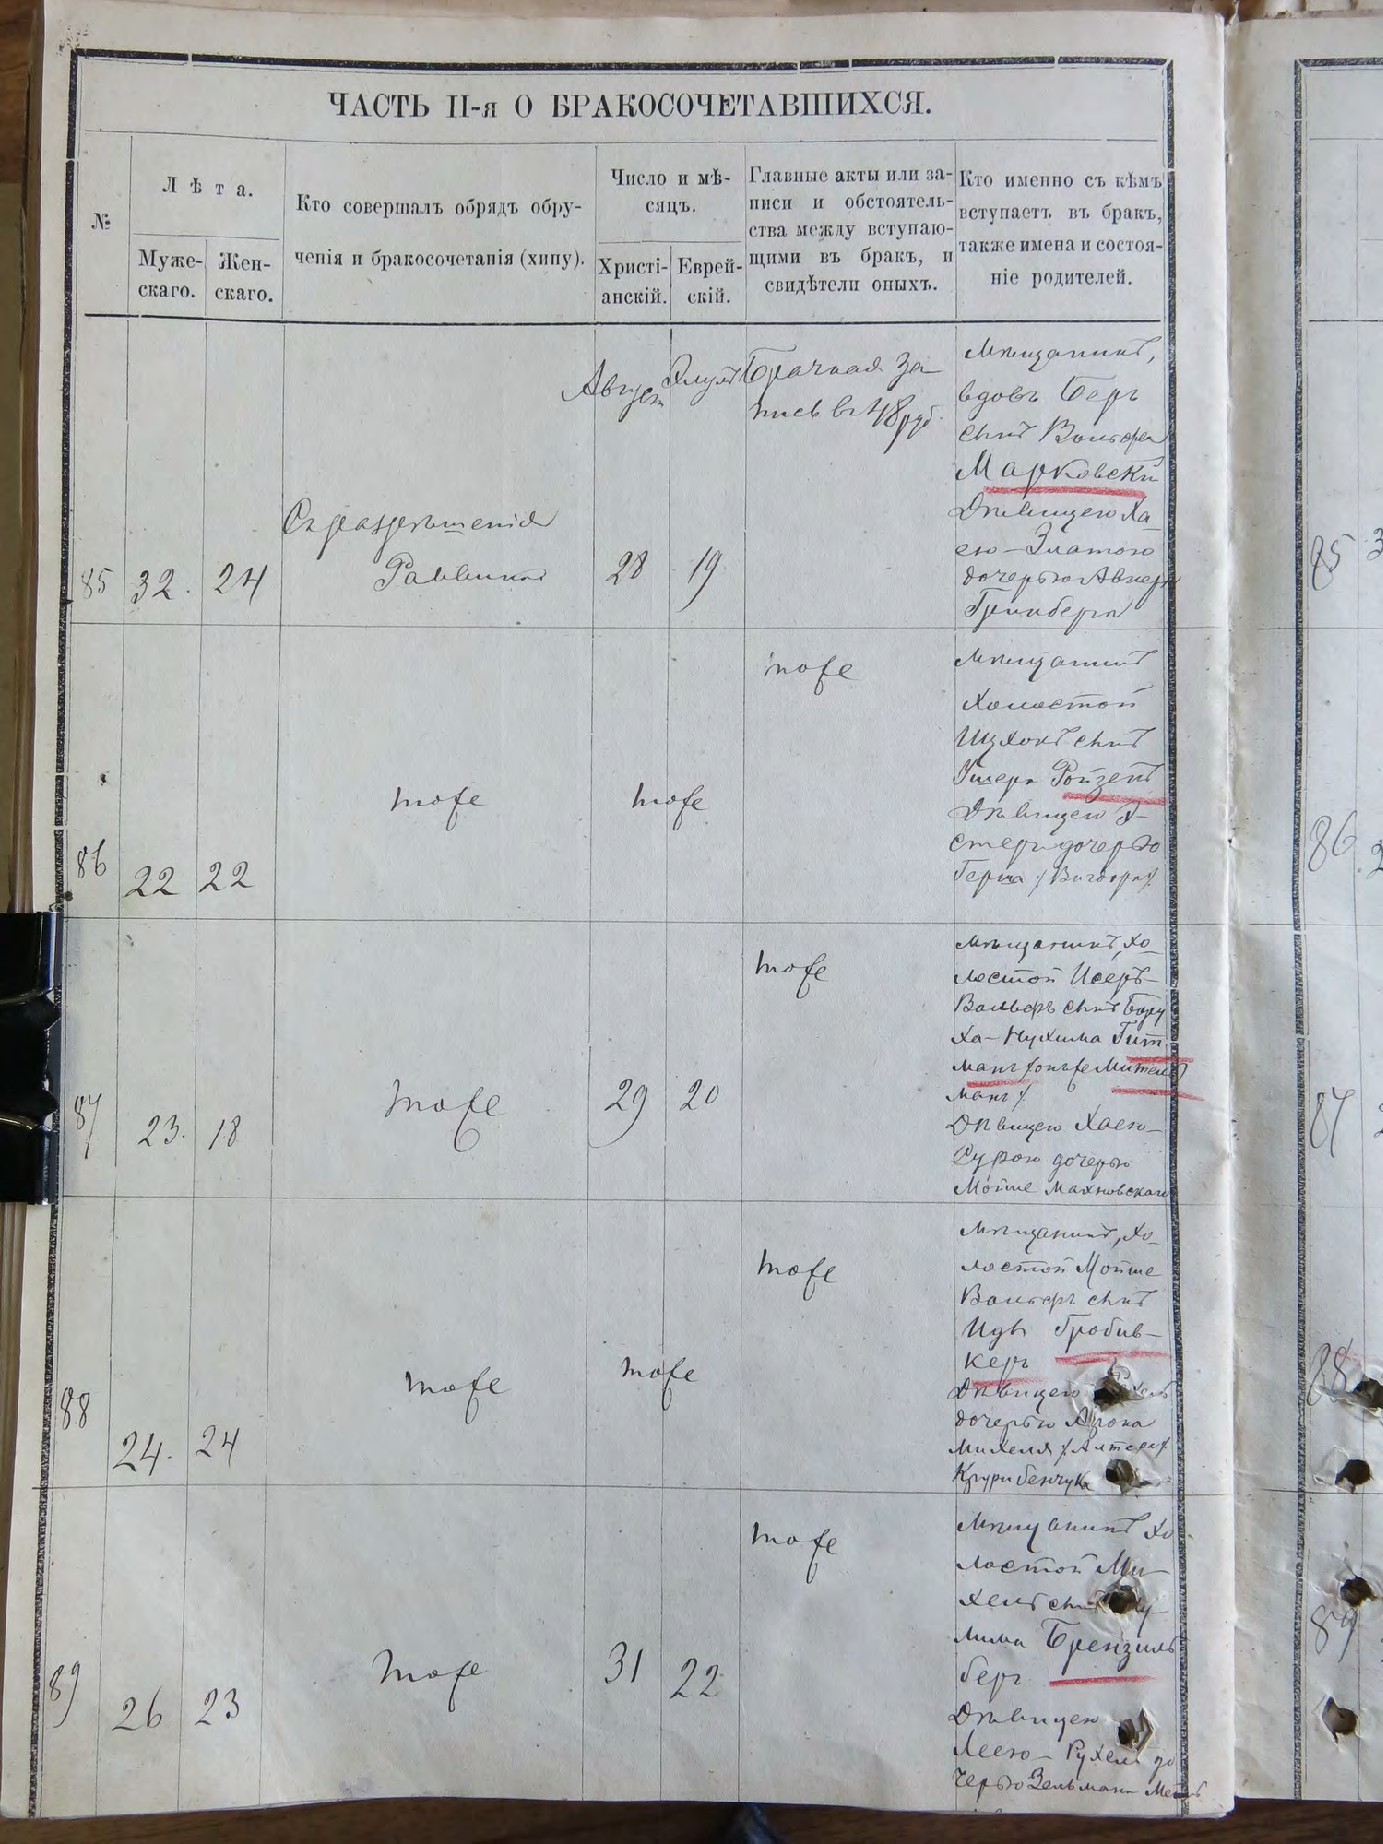 ЧАСТЬ II-я О БРАКОСОЧЕТАВШИХСЯ.
№
Лѣта.
Муже-
скаго.
Жен-
скаго.
Кто совершалъ обрядъ обру-
ченія и бракосочетанія (хипу).
Число и мѣ-
сяцъ.
Христі-
анскій.
Еврей-
скій.
Главные акты или за-
писи и обстоятель-
ства между вступаю-
щими въ бракъ, и
свидѣтели оныхъ.
Кто именно съ кѣмъ
вступаетъ въ бракъ,
также имена и состоя-
ніе родителей.
85
32.
24
Съ разрѣшенія
Раввина
Август
28
Элулъ
19
Брачная за
пись въ 48 руб.
Мѣщанинъ,
вдовъ Беръ
сынъ Вольфа
Марковскій
Дѣвицею Ха-
ею-Златою
дочерью Авнера
Гринберга
86
22
22
тоже
тоже
тоже
Мѣщанинъ
холостой
Ицхокъ сынъ
Ушера Ройзенъ
Дѣвицею Э-
стери дочерью
Герша
87
23.
18
тоже
29
20
тоже
Мѣщанинъ, хо-
лостой Исеръ-
Вольфъ сынъ Бору
ха-Нухима Гит
манъ /онъ же Мительманъ/
Дѣвицею Хаею-
Сурою дочерью
Мойше Махновскаго
88
24.
24
тоже
тоже
тоже
Мѣщанинъ, хо-
лостой Мойше
Вольфъ сынъ
Идъ Гробив-
керъ
Дѣвицею
дочерью Арона
Михеля /Алтера/
89
26
23
тоже
31
22
тоже
Мѣщанинъ хо
лостой Ми-
хель сынъ
лима Брензиль
бергъ
Дѣвицею
Леею-Рухель до
черью Зельмана
85
86
87
88
89